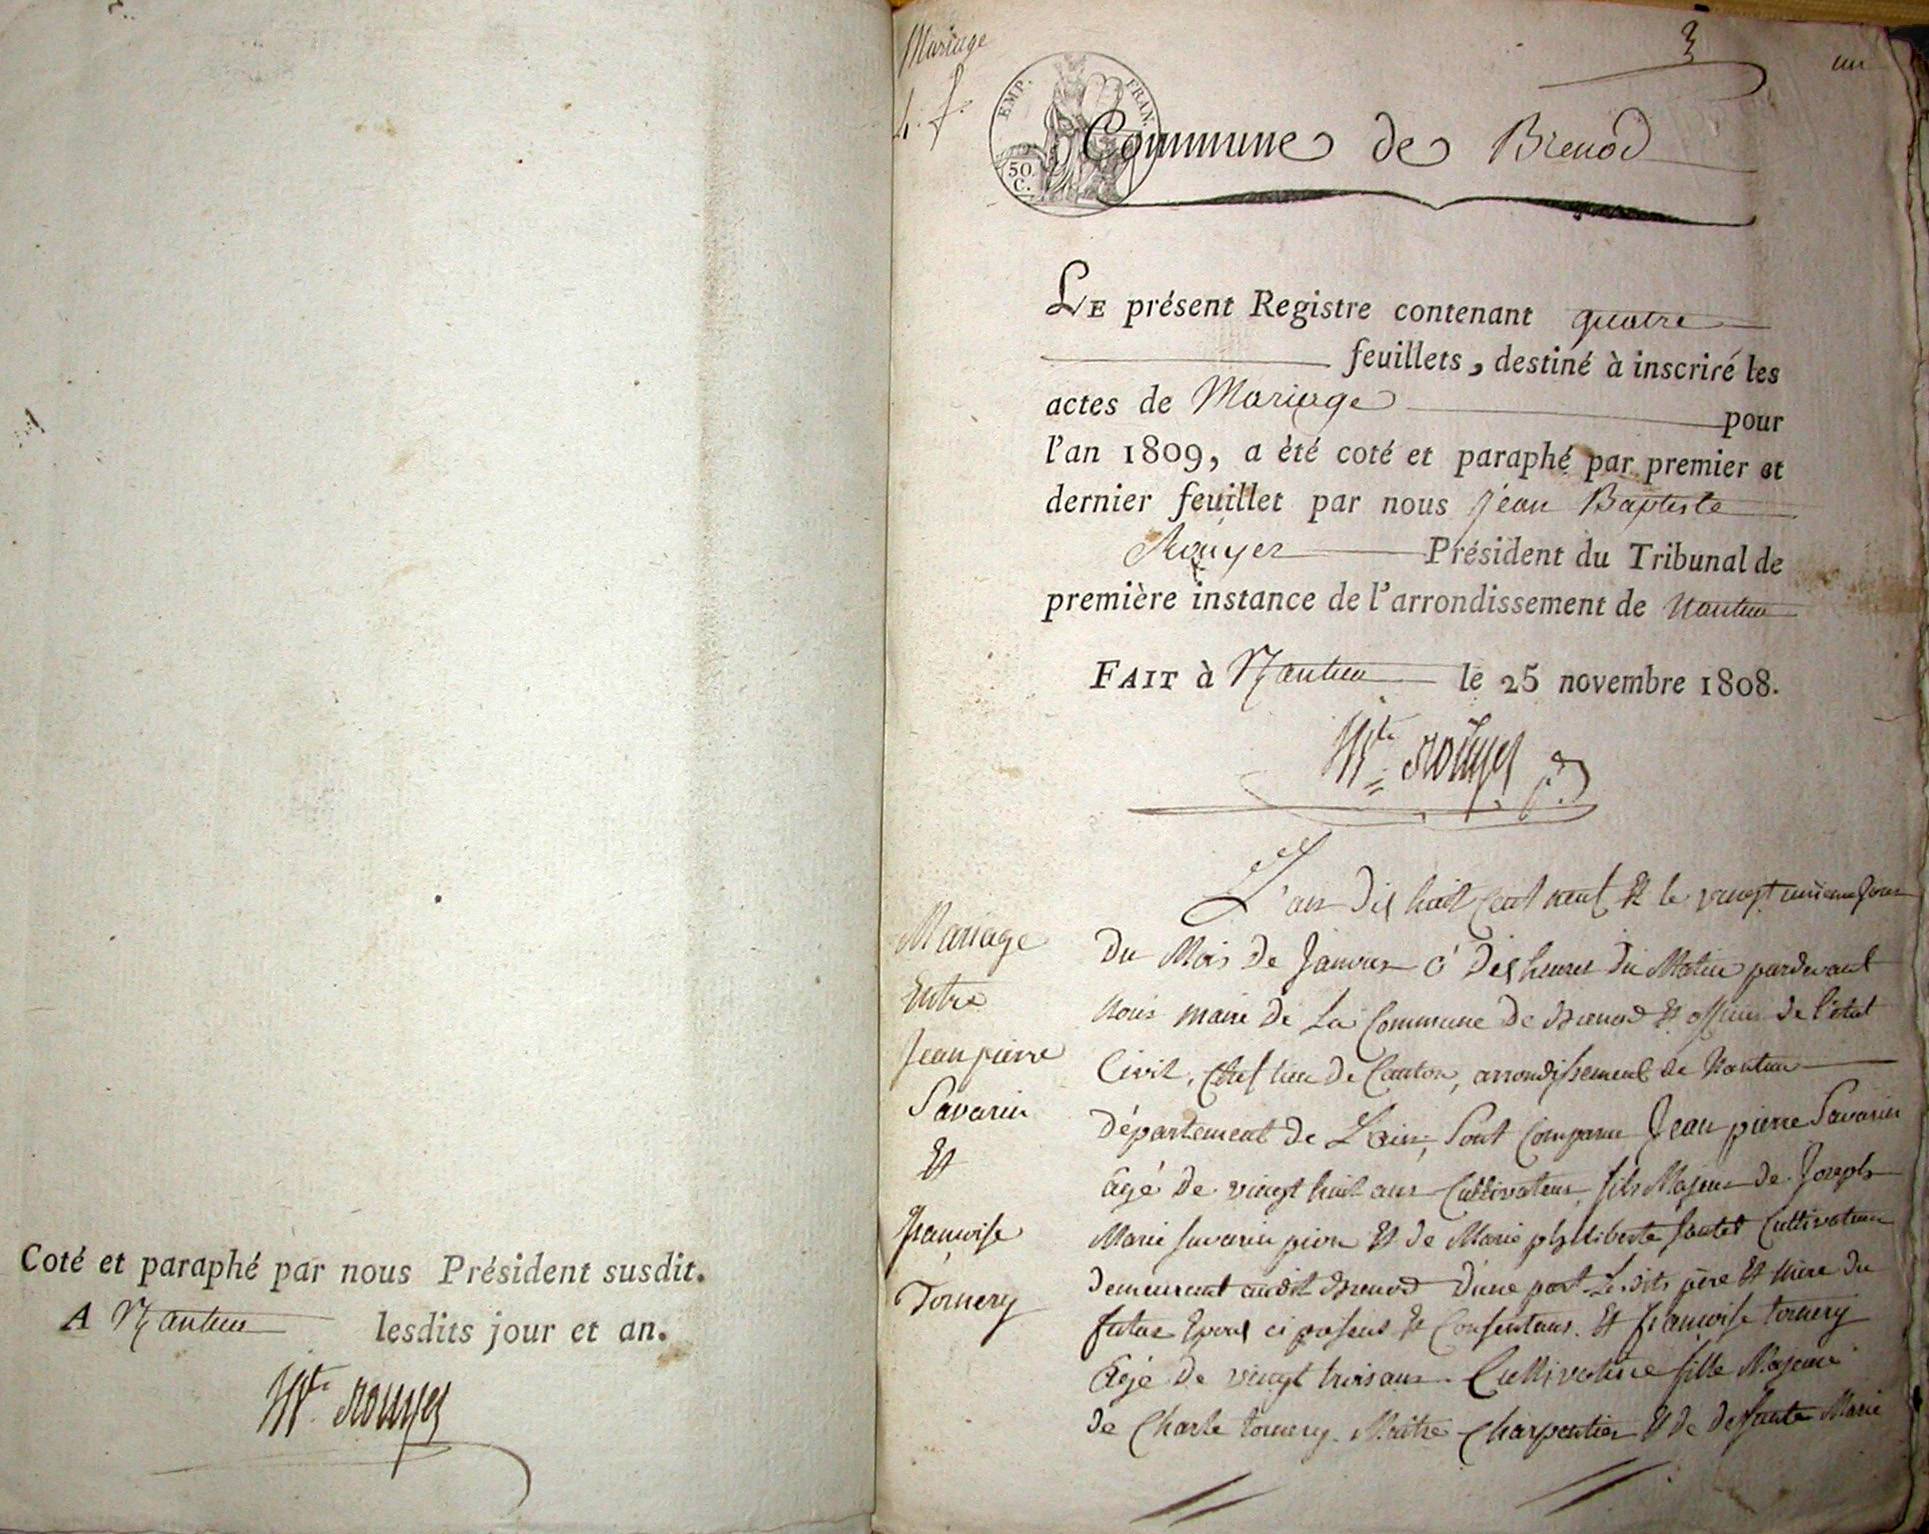 Coté et paraphé par nous Président susdit.
A Nantua lesdits jour et an.
Bte. Rouyer
Mariage
4. f.
3
un
EMP. FRAN.
50 C.
Commune de Brenod
LE présent Registre contenant quatre
feuillets, destiné à inscrire les
actes de Mariage pour
l'an 1809, a été coté et paraphé par premier et
dernier feuillet par nous Jean Baptiste
Rouyer Président du Tribunal de
première instance de l'arrondissement de Nantua
FAIT à Nantua le 25 novembre 1808.
Bte. Rouyer
Mariage
Entre
Jean pierre
Savarin
Et
françoise
Tornery
L'an dix huit cent neuf Et le vingt unieme Jour
Du Mois de Janvier à Dix heures du Matin pardevant
Nous maire de La Commune de Brenod Et officier de l'état
Civil, Chef lieu de Canton, arrondissement de Nantua
département de L'ain, Sont Comparu Jean pierre Savarin
agé de vingt huit ans Cultivateur fils Majeur de Joseph
Marie Savarin Et de Marie philiberte Cultivateur
demeurant audit Brenod d'une part Lesdits père Et Mère du
futur Epoux ci présens Et Consentans. Et françoise tornery
Agé de vingt trois ans Cultivatrice fille Majeure
de Charle tornery Maitre Charpentier Et de deffunte Marie